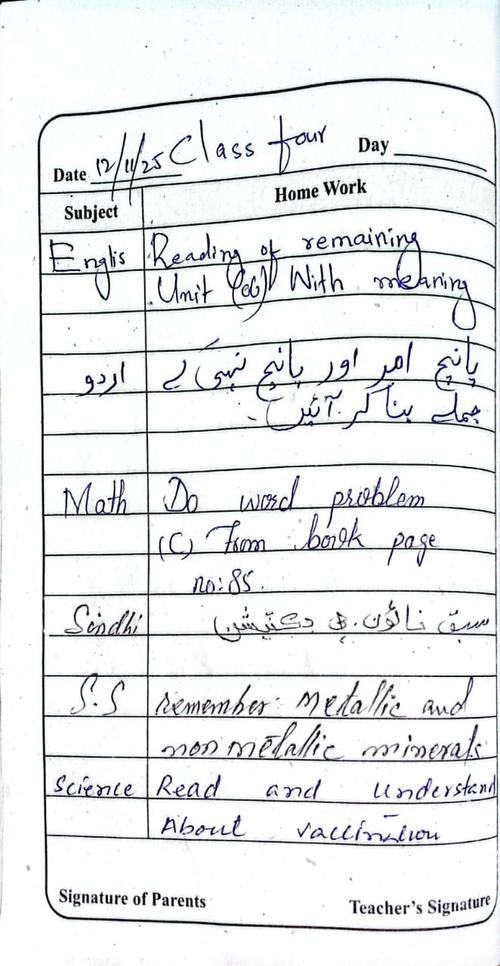 Date 12/11/25 Class four Day
Subject Home Work
Englis Reading of remaining
Unit (06) With meaning
اردو پانچ امر اور پانچ نہی کے
جملے بنا کر آئیں۔
Math Do word problem
(C) From book page
no: 85.
Sindhi سبق نائون. جي ڊڪٽيشن
S.S remember metallic and
non metallic minerals
Science Read and understand
About vaccination
Signature of Parents Teacher's Signature